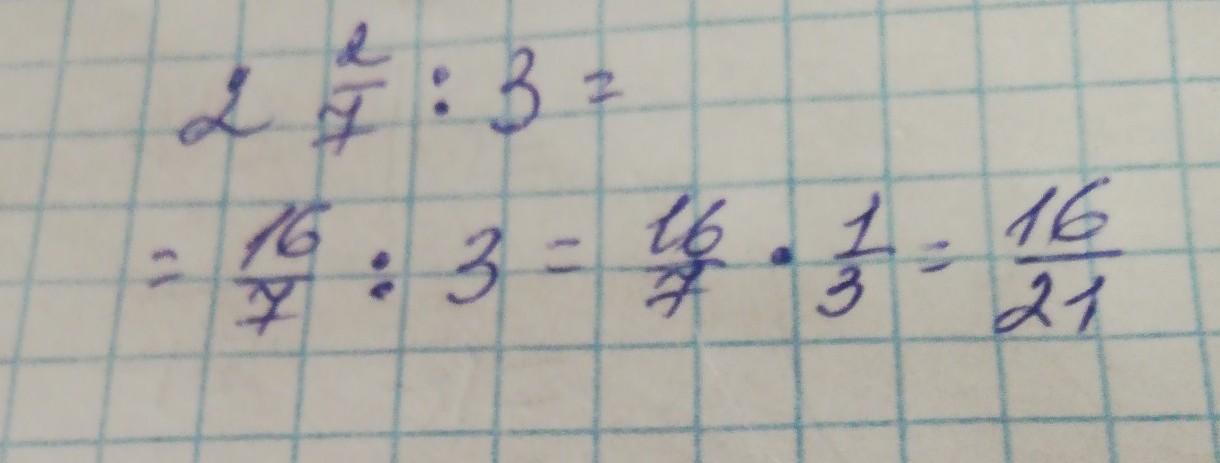 2 2/7 : 3 =
= 16/7 : 3 = 16/7 · 1/3 = 16/21